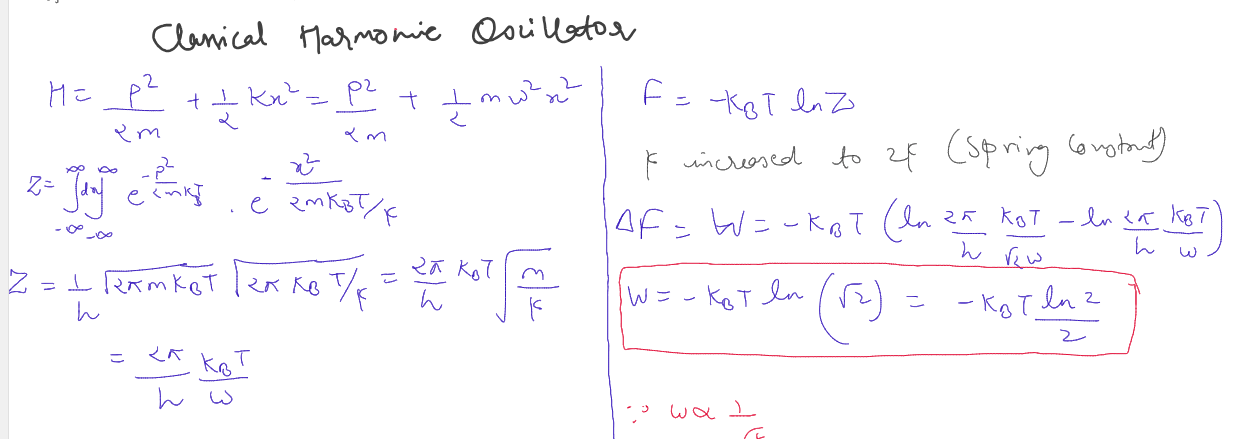 Classical Harmonic Oscillator
H = p²/2m + 1/2 Kx² = p²/2m + 1/2 mω²x²
Z = ∫∫dx e^(-p²/2mK_BT) . e^(-x²/2mK_BT/K)
-∞ -∞
Z = 1/h √(2πmK_BT) √(2πK_BT/K) = 2π/h K_BT √(m/K)
= 2π/h K_BT/ω
F = -K_BT ln Z
K increased to 2K (Spring Constant)
ΔF = W = -K_BT (ln 2π/h K_BT/√2ω - ln 2π/h K_BT/ω)
W = -K_BT ln (√2) = -K_BT ln 2/2
∵ ω ∝ 1/√